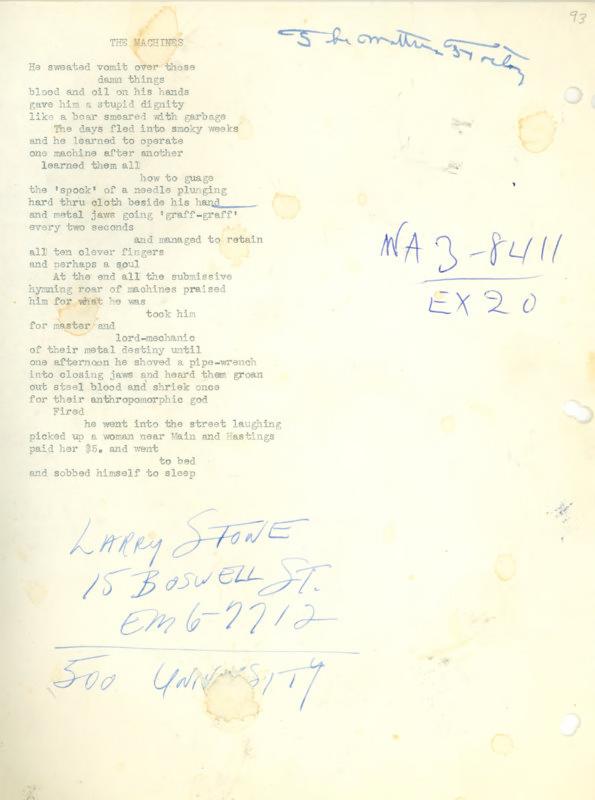 93
THE MACHINES
He sweated vomit over these
damn things
blood and oil on his hands
gave him a stupid dignity
like a boar smeared with garbage
The days fled into smoky weeks
and he learned to operate
one machine after another
learned them all
how to guage
the 'spock' of a needle plunging
hard thru cloth beside his hand
and metal jaws going 'graff-graff'
every two seconds
and managed to retain
all ten clever fingers
and perhaps a soul
At the end all the submissive
hymning roar of machines praised
him for what he was
took him
for master and
lord-mechanic
of their metal destiny until
one afternoon he shoved a pipe-wrench
into closing jaws and heard them groan
out steel blood and shriek once
for their anthropomorphic god
Fired
he went into the street laughing
picked up a woman near Main and Hastings
paid her $5. and went
to bed
and sobbed himself to sleep
WA 3-8411
EX 20
LARRY STONE
15 BOSWELL ST.
EM 6-7712
500 UNIVERSITY